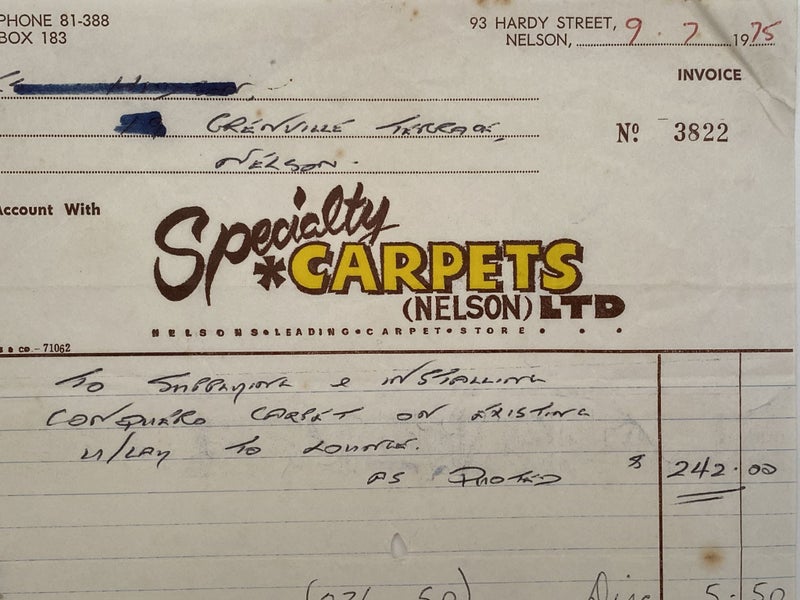 PHONE 81-388
BOX 183
93 HARDY STREET,
NELSON, 9 . 7 1975
INVOICE
GRENVILLE TERRACE,
Nº 3822
NELSON.
Account With
Specialty
*CARPETS
(NELSON) LTD
NELSONS•LEADING•CARPET•STORE• • •
& CO.-71062
TO SUPPLYING & INSTALLING
CARPET ON EXISTING
U/LAY TO LOUNGE.
AS QUOTED $ 242.00
Disc 5.50